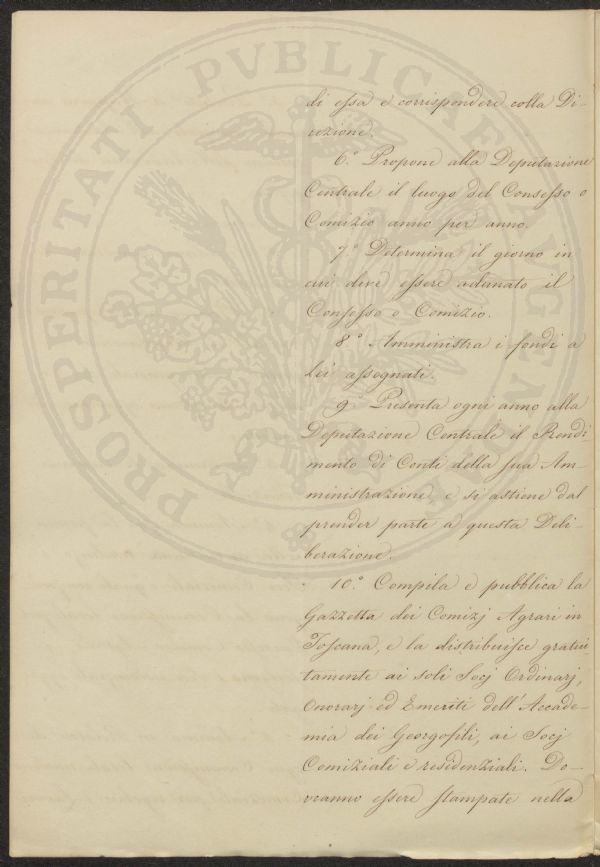 di essa e corrispondere colla Di-
rezione.
6.° Propone alla Deputazione
Centrale il luogo del Consesso o
Comizio anno per anno.
7.° Determina il giorno in
cui deve essere adunato il
Consesso o Comizio.
8.° Amministra i fondi a
lei assegnati.
9.° Presenta ogni anno alla
Deputazione Centrale il Rendi
mento di Conti della sua Am-
ministrazione, e si astiene dal
prender parte a questa Deli-
berazione.
10.° Compila e pubblica la
Gazzetta dei Comizj Agrari in
Toscana, e la distribuisce gratui
tamente ai soli Socj Ordinarj,
Onorarj ed Emeriti dell'Accade-
mia dei Georgofili, ai Socj
Comiziali e residenziali. Do-
vranno essere stampate nella
PROSPERITATI PVBLICAE AVGENDAE